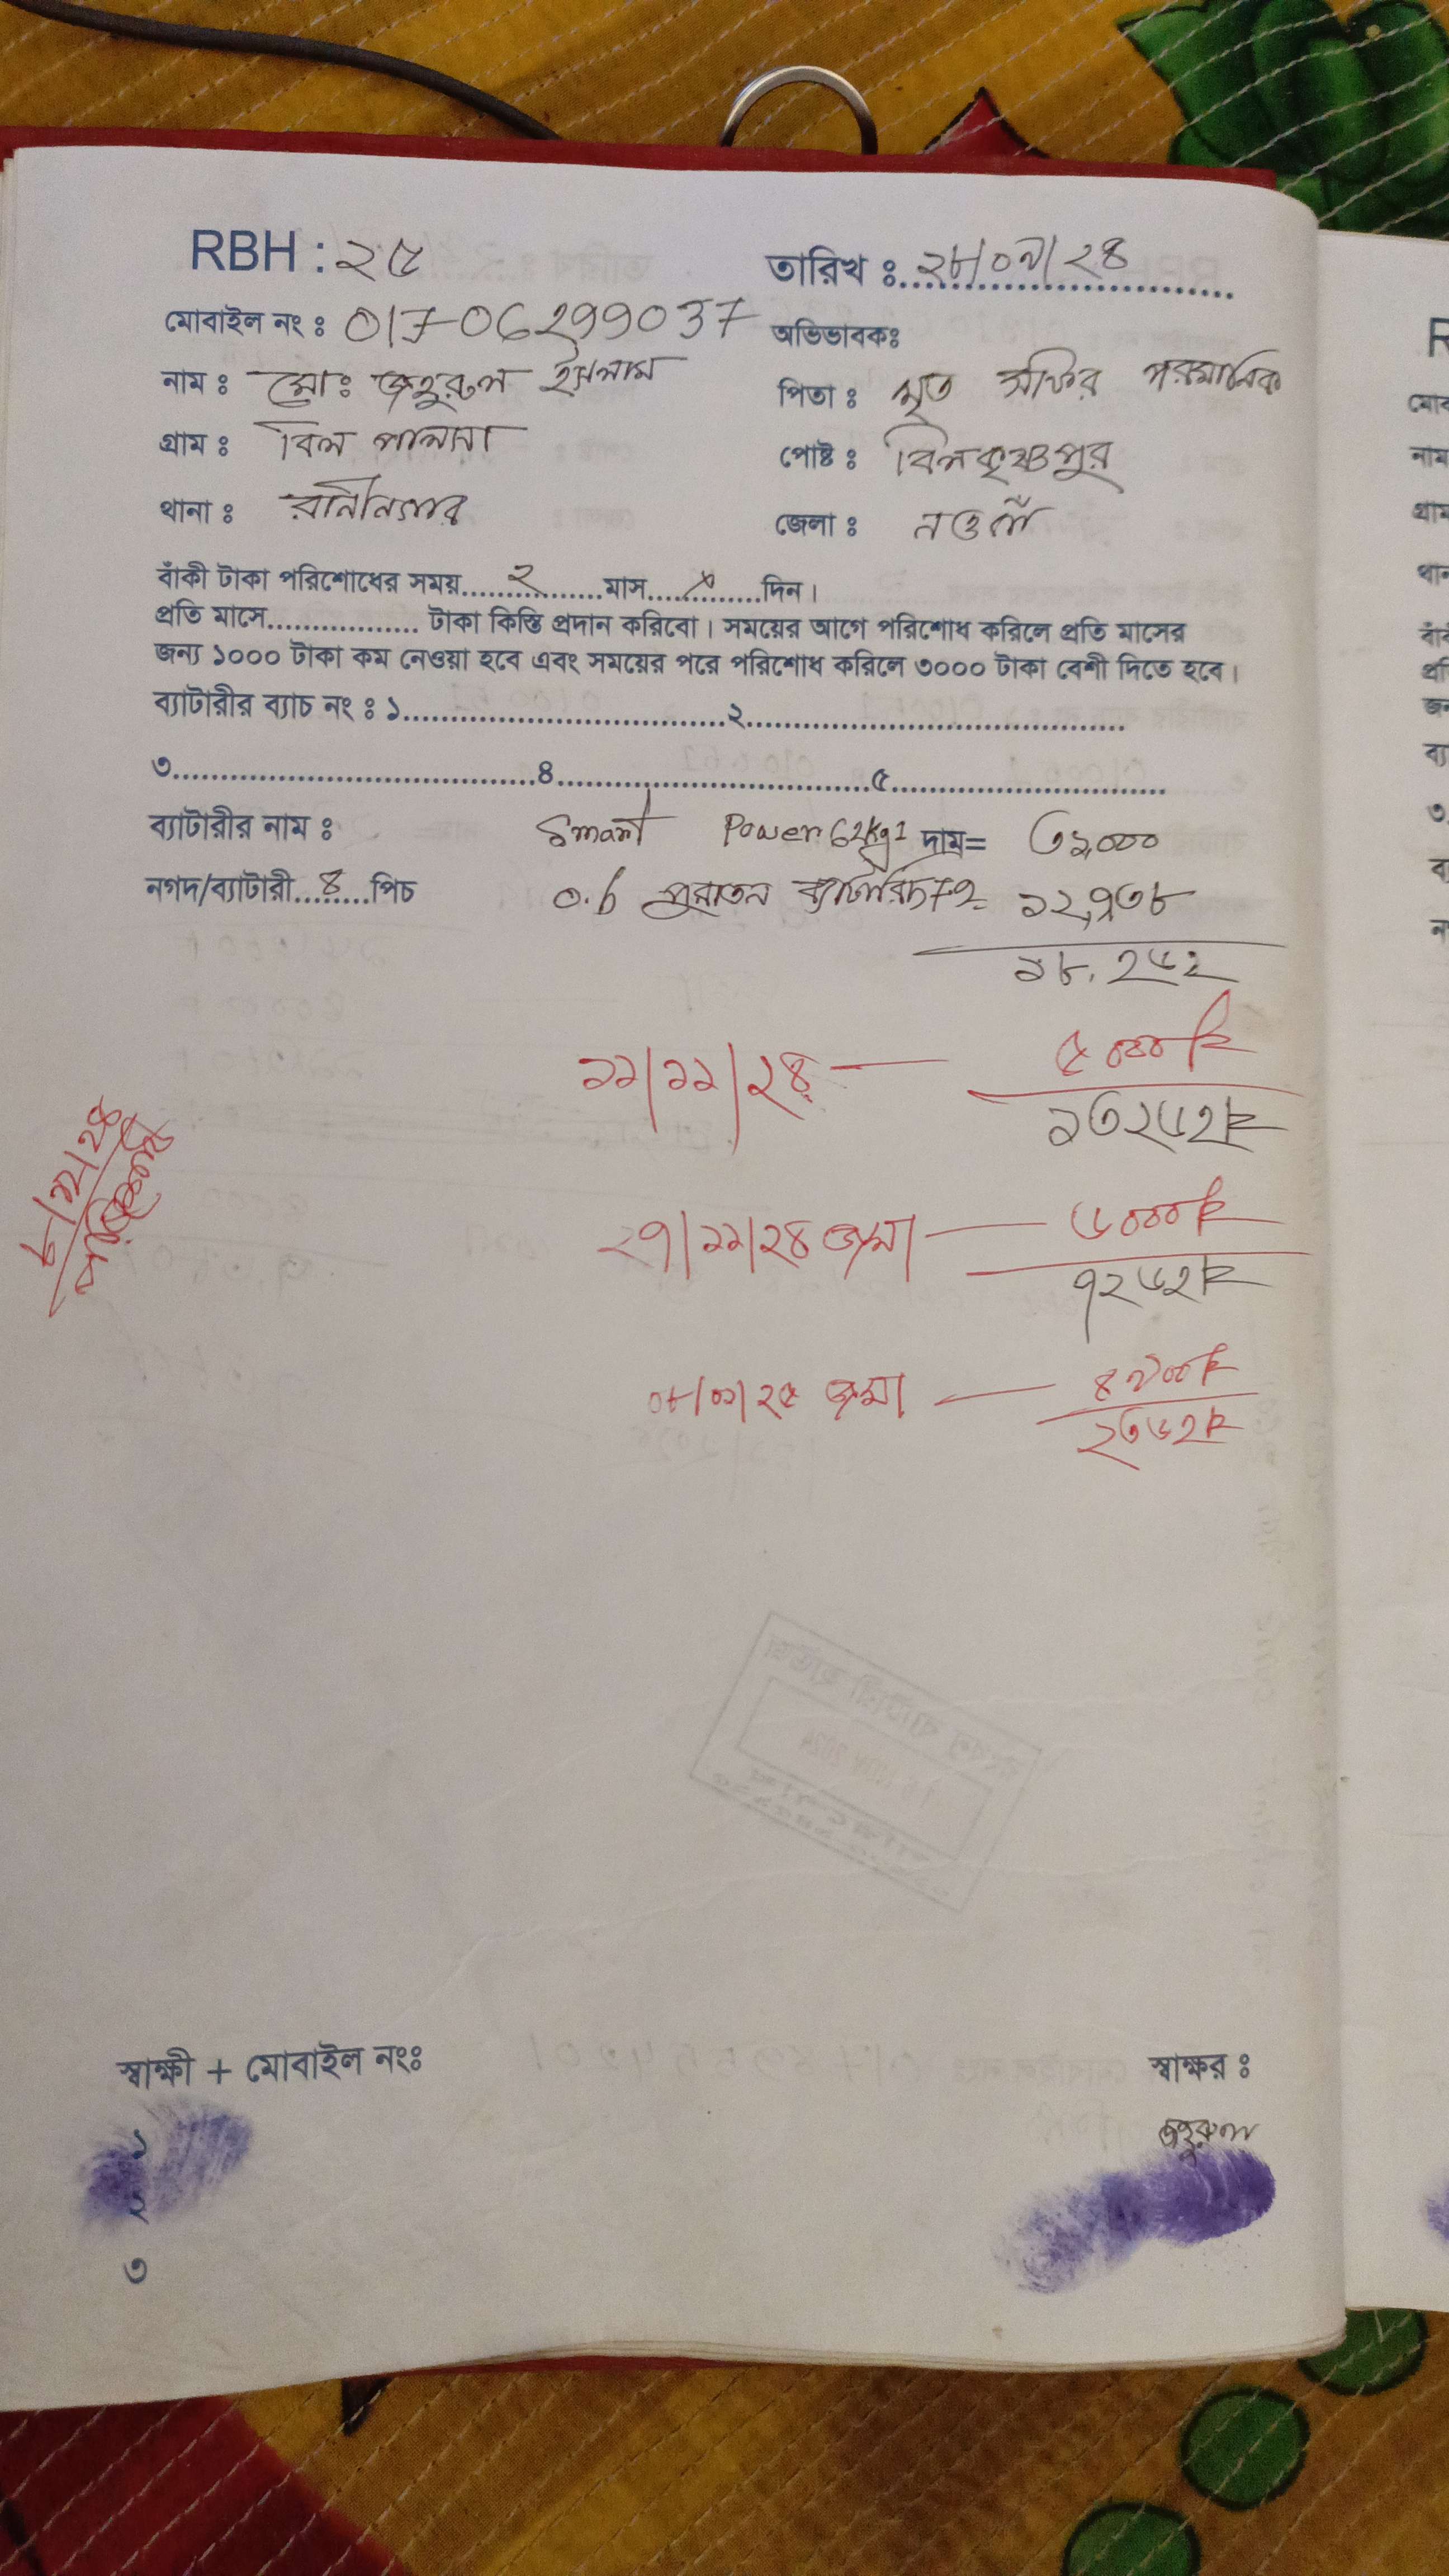 RBH : ২৫
তারিখ ঃ ২৮/০৯/২৪
মোবাইল নং ঃ 01706299037
অভিভাবকঃ
নাম ঃ মোঃ জহুরুল ইসলাম
পিতা ঃ মৃত সফির পরমানিক
গ্রাম ঃ বিল পালসা
পোষ্ট ঃ বিলকৃষ্ণপুর
থানা ঃ রানীনগর
জেলা ঃ নওগাঁ
বাঁকী টাকা পরিশোধের সময়......২......মাস....×.....দিন।
প্রতি মাসে................. টাকা কিস্তি প্রদান করিবো। সময়ের আগে পরিশোধ করিলে প্রতি মাসের
জন্য ১০০০ টাকা কম নেওয়া হবে এবং সময়ের পরে পরিশোধ করিলে ৩০০০ টাকা বেশী দিতে হবে।
ব্যাটারীর ব্যাচ নং ঃ ১....................................২..........................................
৩.........................................৪...................................৫................................
ব্যাটারীর নাম ঃ Smart Power 62kg দাম= ৩১,০০০
নগদ/ব্যাটারী....৪.....পিচ
০.৮ পুরাতন ১২,৭৩৮
১৮,২৬২
১১/১১/২৪ — ৫০০০৳
১৩২৬২৳
২৭/১১/২৪ জমা — ৬০০০৳
৭২৬২৳
৮/১২/২৪
০৮/০১/২৫ জমা — ৪৯০০৳
২৩৬২৳
স্বাক্ষী + মোবাইল নংঃ
স্বাক্ষর ঃ
জহুরুল
১
২
৩